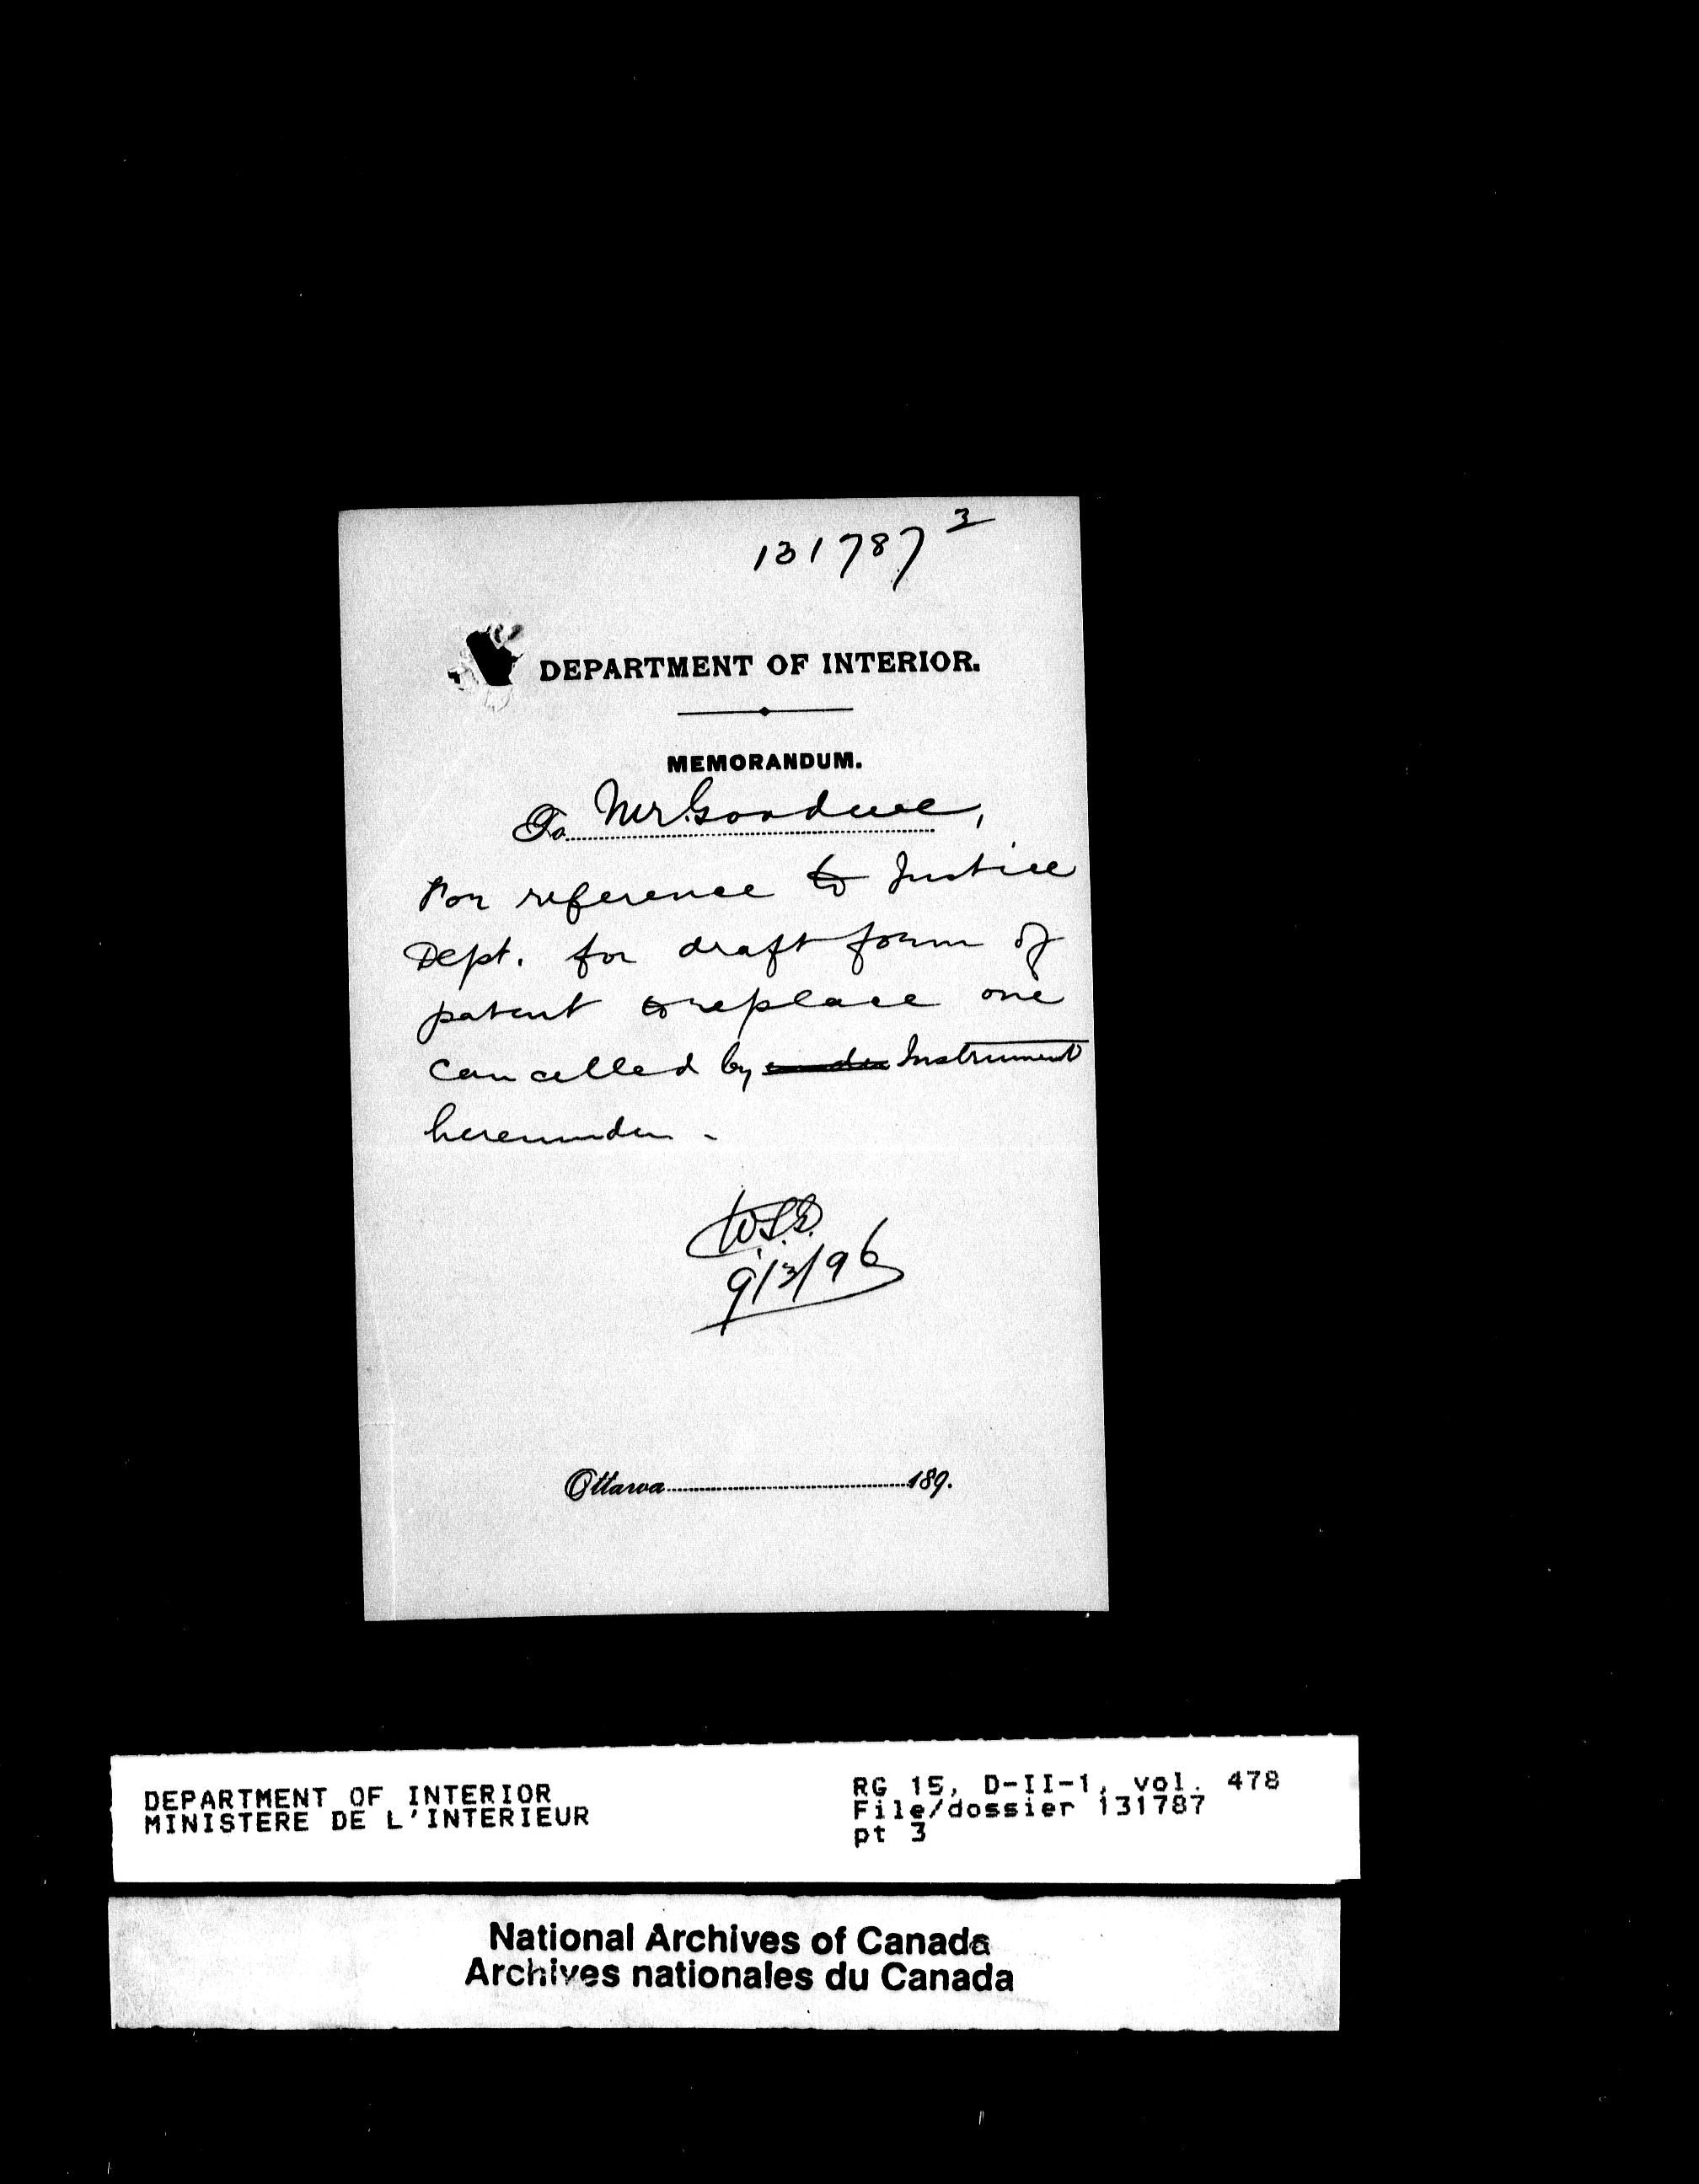 131787 3
DEPARTMENT OF INTERIOR.
MEMORANDUM.
To Mr. Goodeve,
For reference to Justice
Dept. for draft form of
patent to replace one
cancelled by Instrument
hereunder -
9/3/96
Ottawa 189.
DEPARTMENT OF INTERIOR
MINISTERE DE L'INTERIEUR
RG 15, D-II-1, vol. 478
File/dossier 131787
pt 3
National Archives of Canada
Archives nationales du Canada